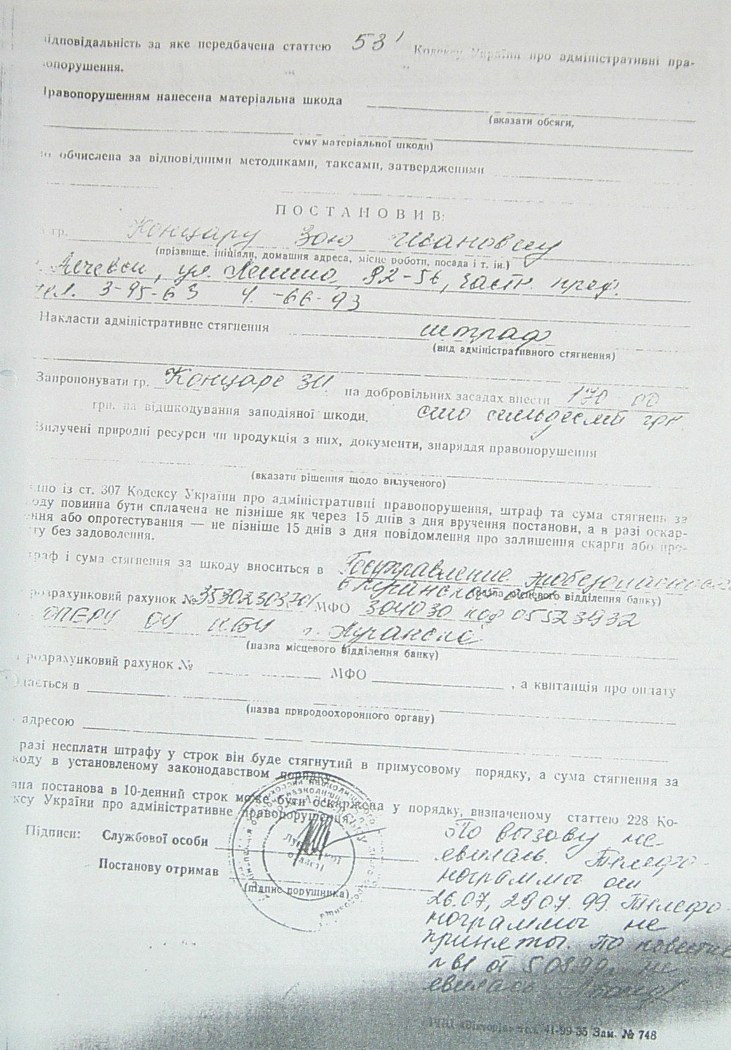 ідповідальність за яке передбачена статтею 53' Кодексу України про адміністративні пра-
опорушення.
Правопорушенням нанесена матеріальна шкода
(вказати обсяги,
суму матеріальної шкоди)
о обчислена за відповідними методиками, таксами, затвердженими
ПОСТАНОВИВ:
гр. Концару Зою Ивановну
(прізвище, ініціали, домашня адреса, місце роботи, посада і т. ін.)
Алчевск, ул. Ленина, 92-56, частн. пред.
тел. 3-95-63 4-66-93
Накласти адміністративне стягнення штраф
(вид адміністративного стягнення)
Запропонувати гр. Концаре ЗИ на добровільних засадах внести 170-00
грн. на відшкодування заподіяної шкоди, сто семьдесят грн
Вилучені природні ресурси чи продукція з них, документи, знаряддя правопорушення
(вказати рішення щодо вилученого)
дно із ст. 307 Кодексу України про адміністративні правопорушення, штраф та сума стягнень за
оду повинна бути сплачена не пізніше як через 15 днів з дня вручення постанови, а в разі оскар-
ення або опротестування — не пізніше 15 днів з дня повідомлення про залишення скарги або про-
ту без задоволення.
раф і сума стягнення за шкоду вноситься в Госуправление экобезопасности
в Луганской (назва місцевого відділення банку)
розрахунковий рахунок № МФО 304030 код 05523932
ОПЕРУ ОУ НБУ г. Луганска
(назва місцевого відділення банку)
розрахунковий рахунок № МФО , а квитанція про оплату
дається в
(назва природоохоронного органу)
адресою
разі несплати штрафу у строк він буде стягнутий в примусовому порядку, а сума стягнення за
коду в установленому законодавством порядку.
на постанова в 10-денний строк може бути оскаржена у порядку, визначеному статтею 228 Ко-
ксу України про адміністративне правопорушення.
Підписи: Службової особи
Постанову отримав
(підпис порушника)
По вызову не
евилась. Телефо-
нограммы от
26.07, 29.07.99. Телефо-
нограммы не
приняты. По повестке
от 5.08.99 не
евилась
тел. 41-99-35 Зам. № 748